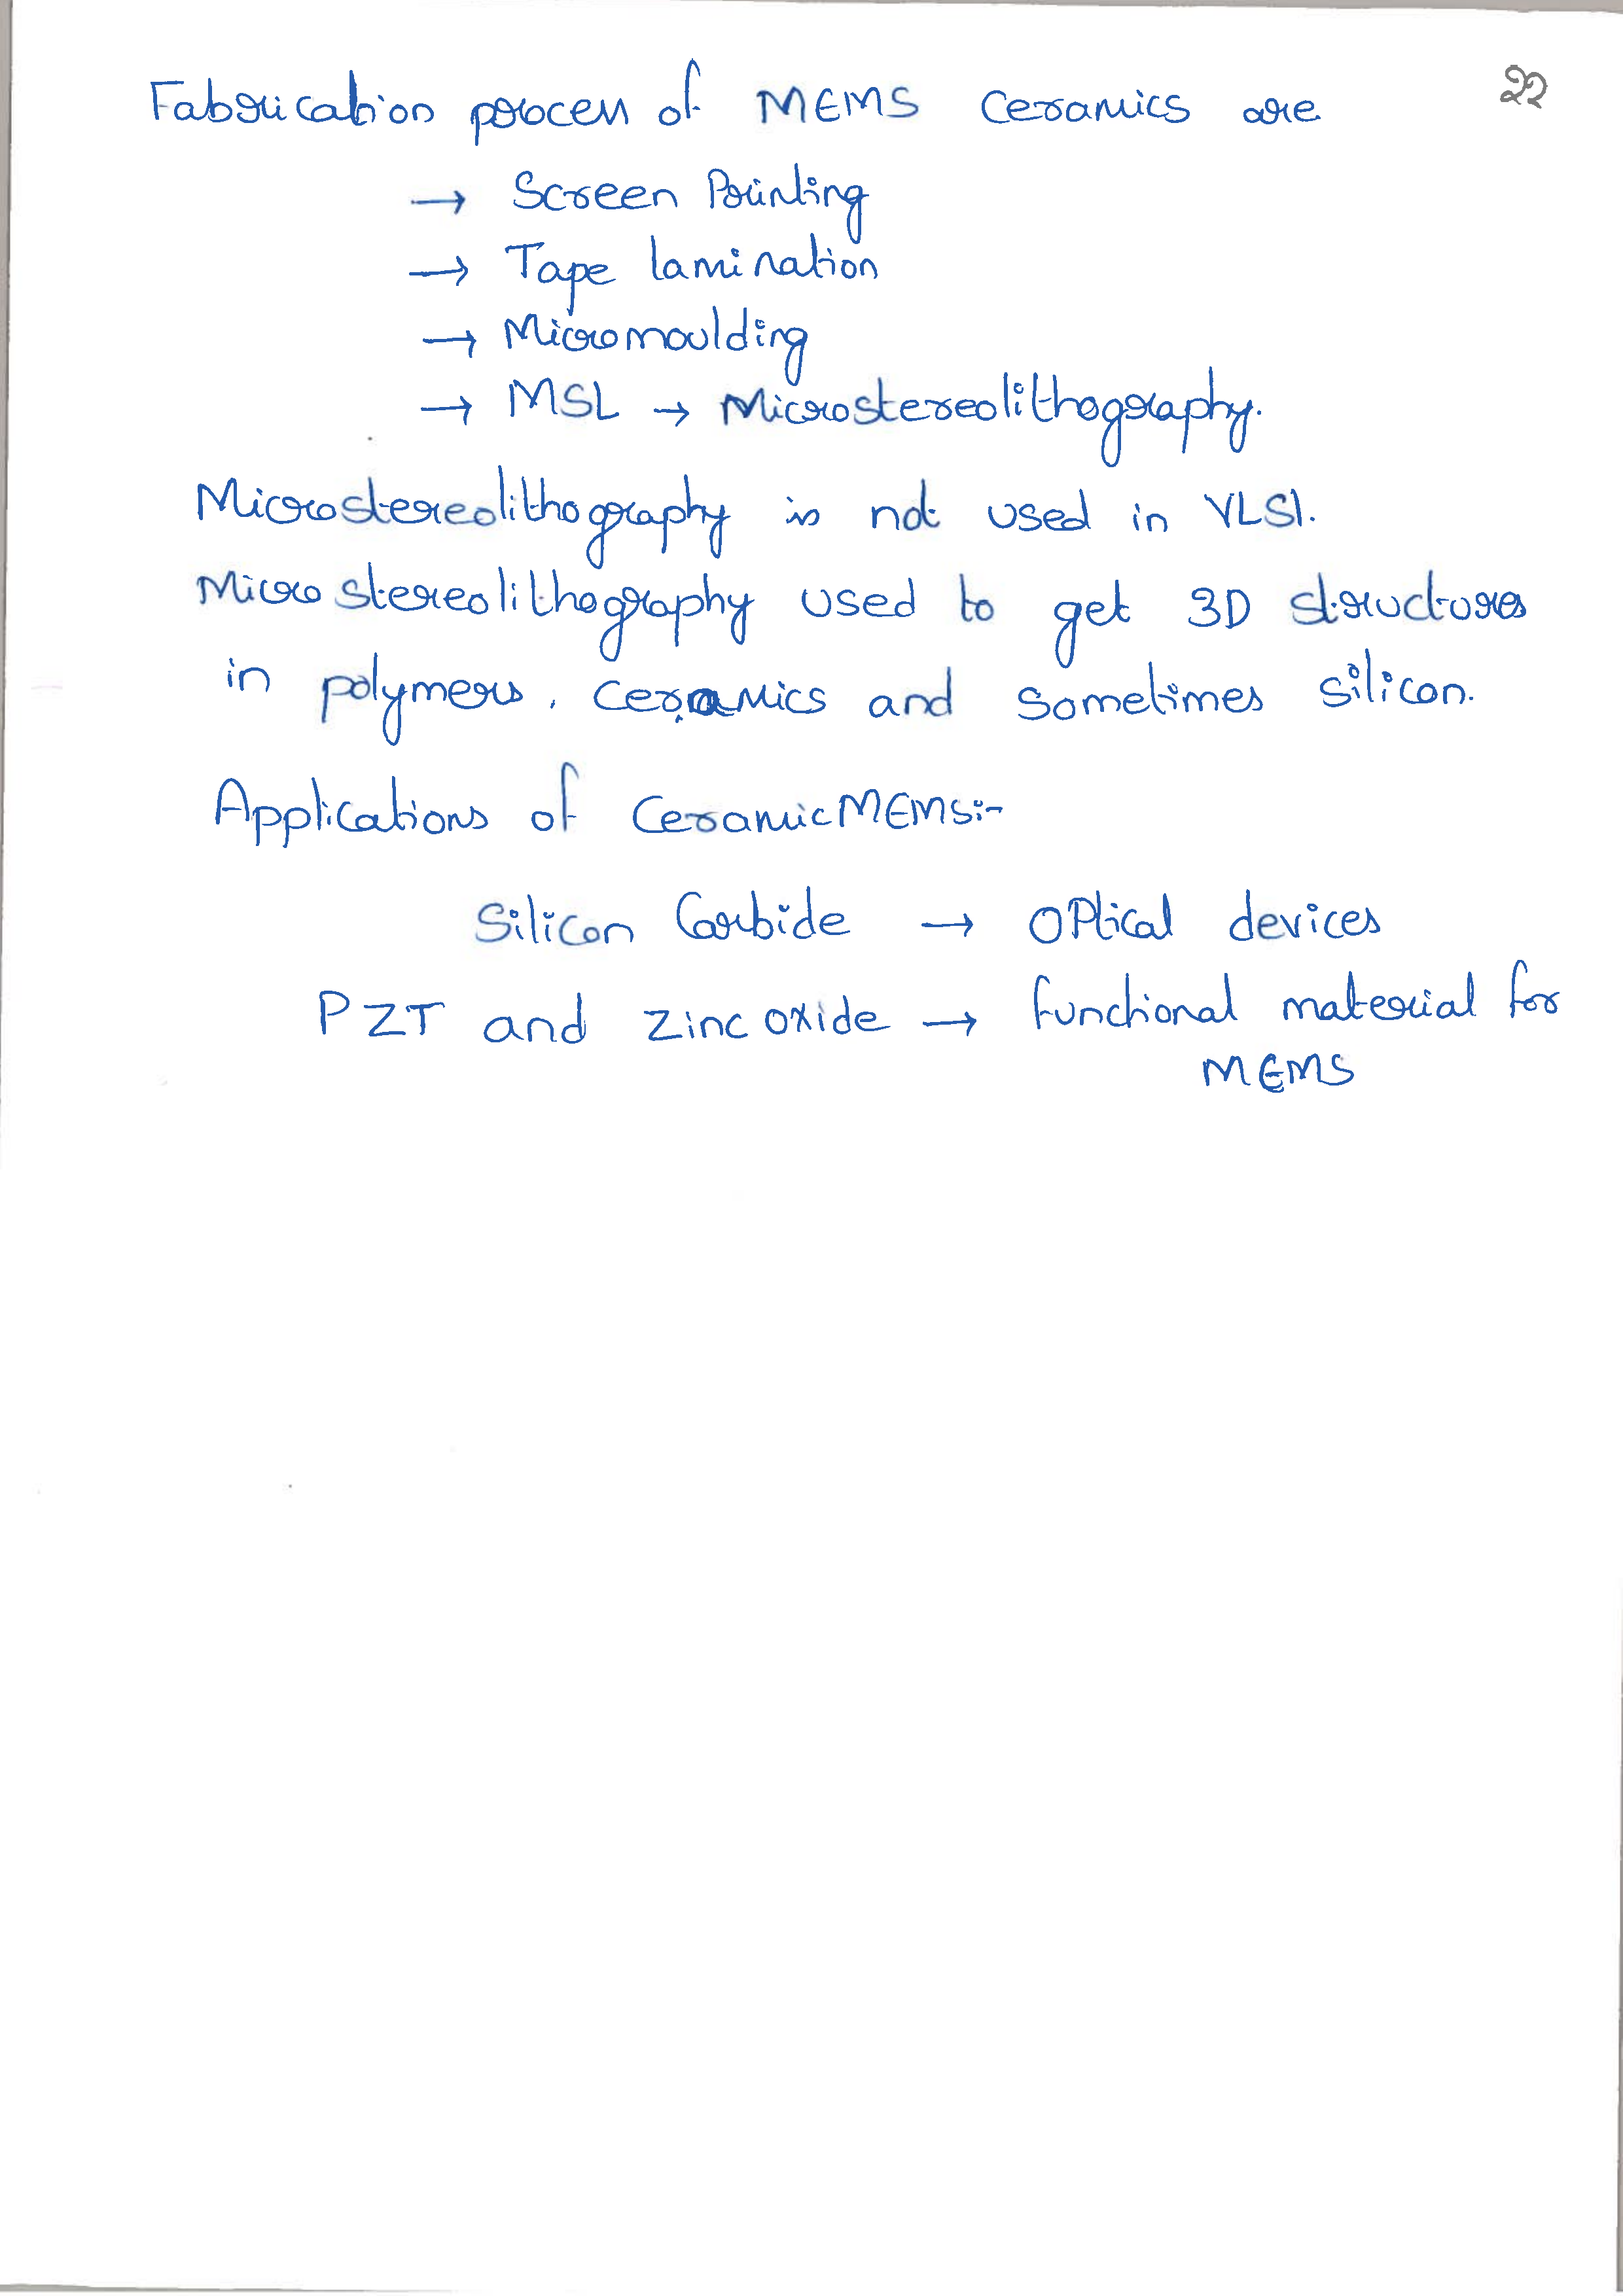 22
Fabrication process of MEMS Ceramics are
→ Screen Printing
→ Tape lamination
→ Micromoulding
→ MSL → Microstereolithography.
Microstereolithography is not used in VLSI.
Microstereolithography used to get 3D structures
in polymers, ceramics and sometimes silicon.
Applications of Ceramic MEMS:-
Silicon Carbide → Optical devices
PZT and zinc oxide → functional material for
MEMS